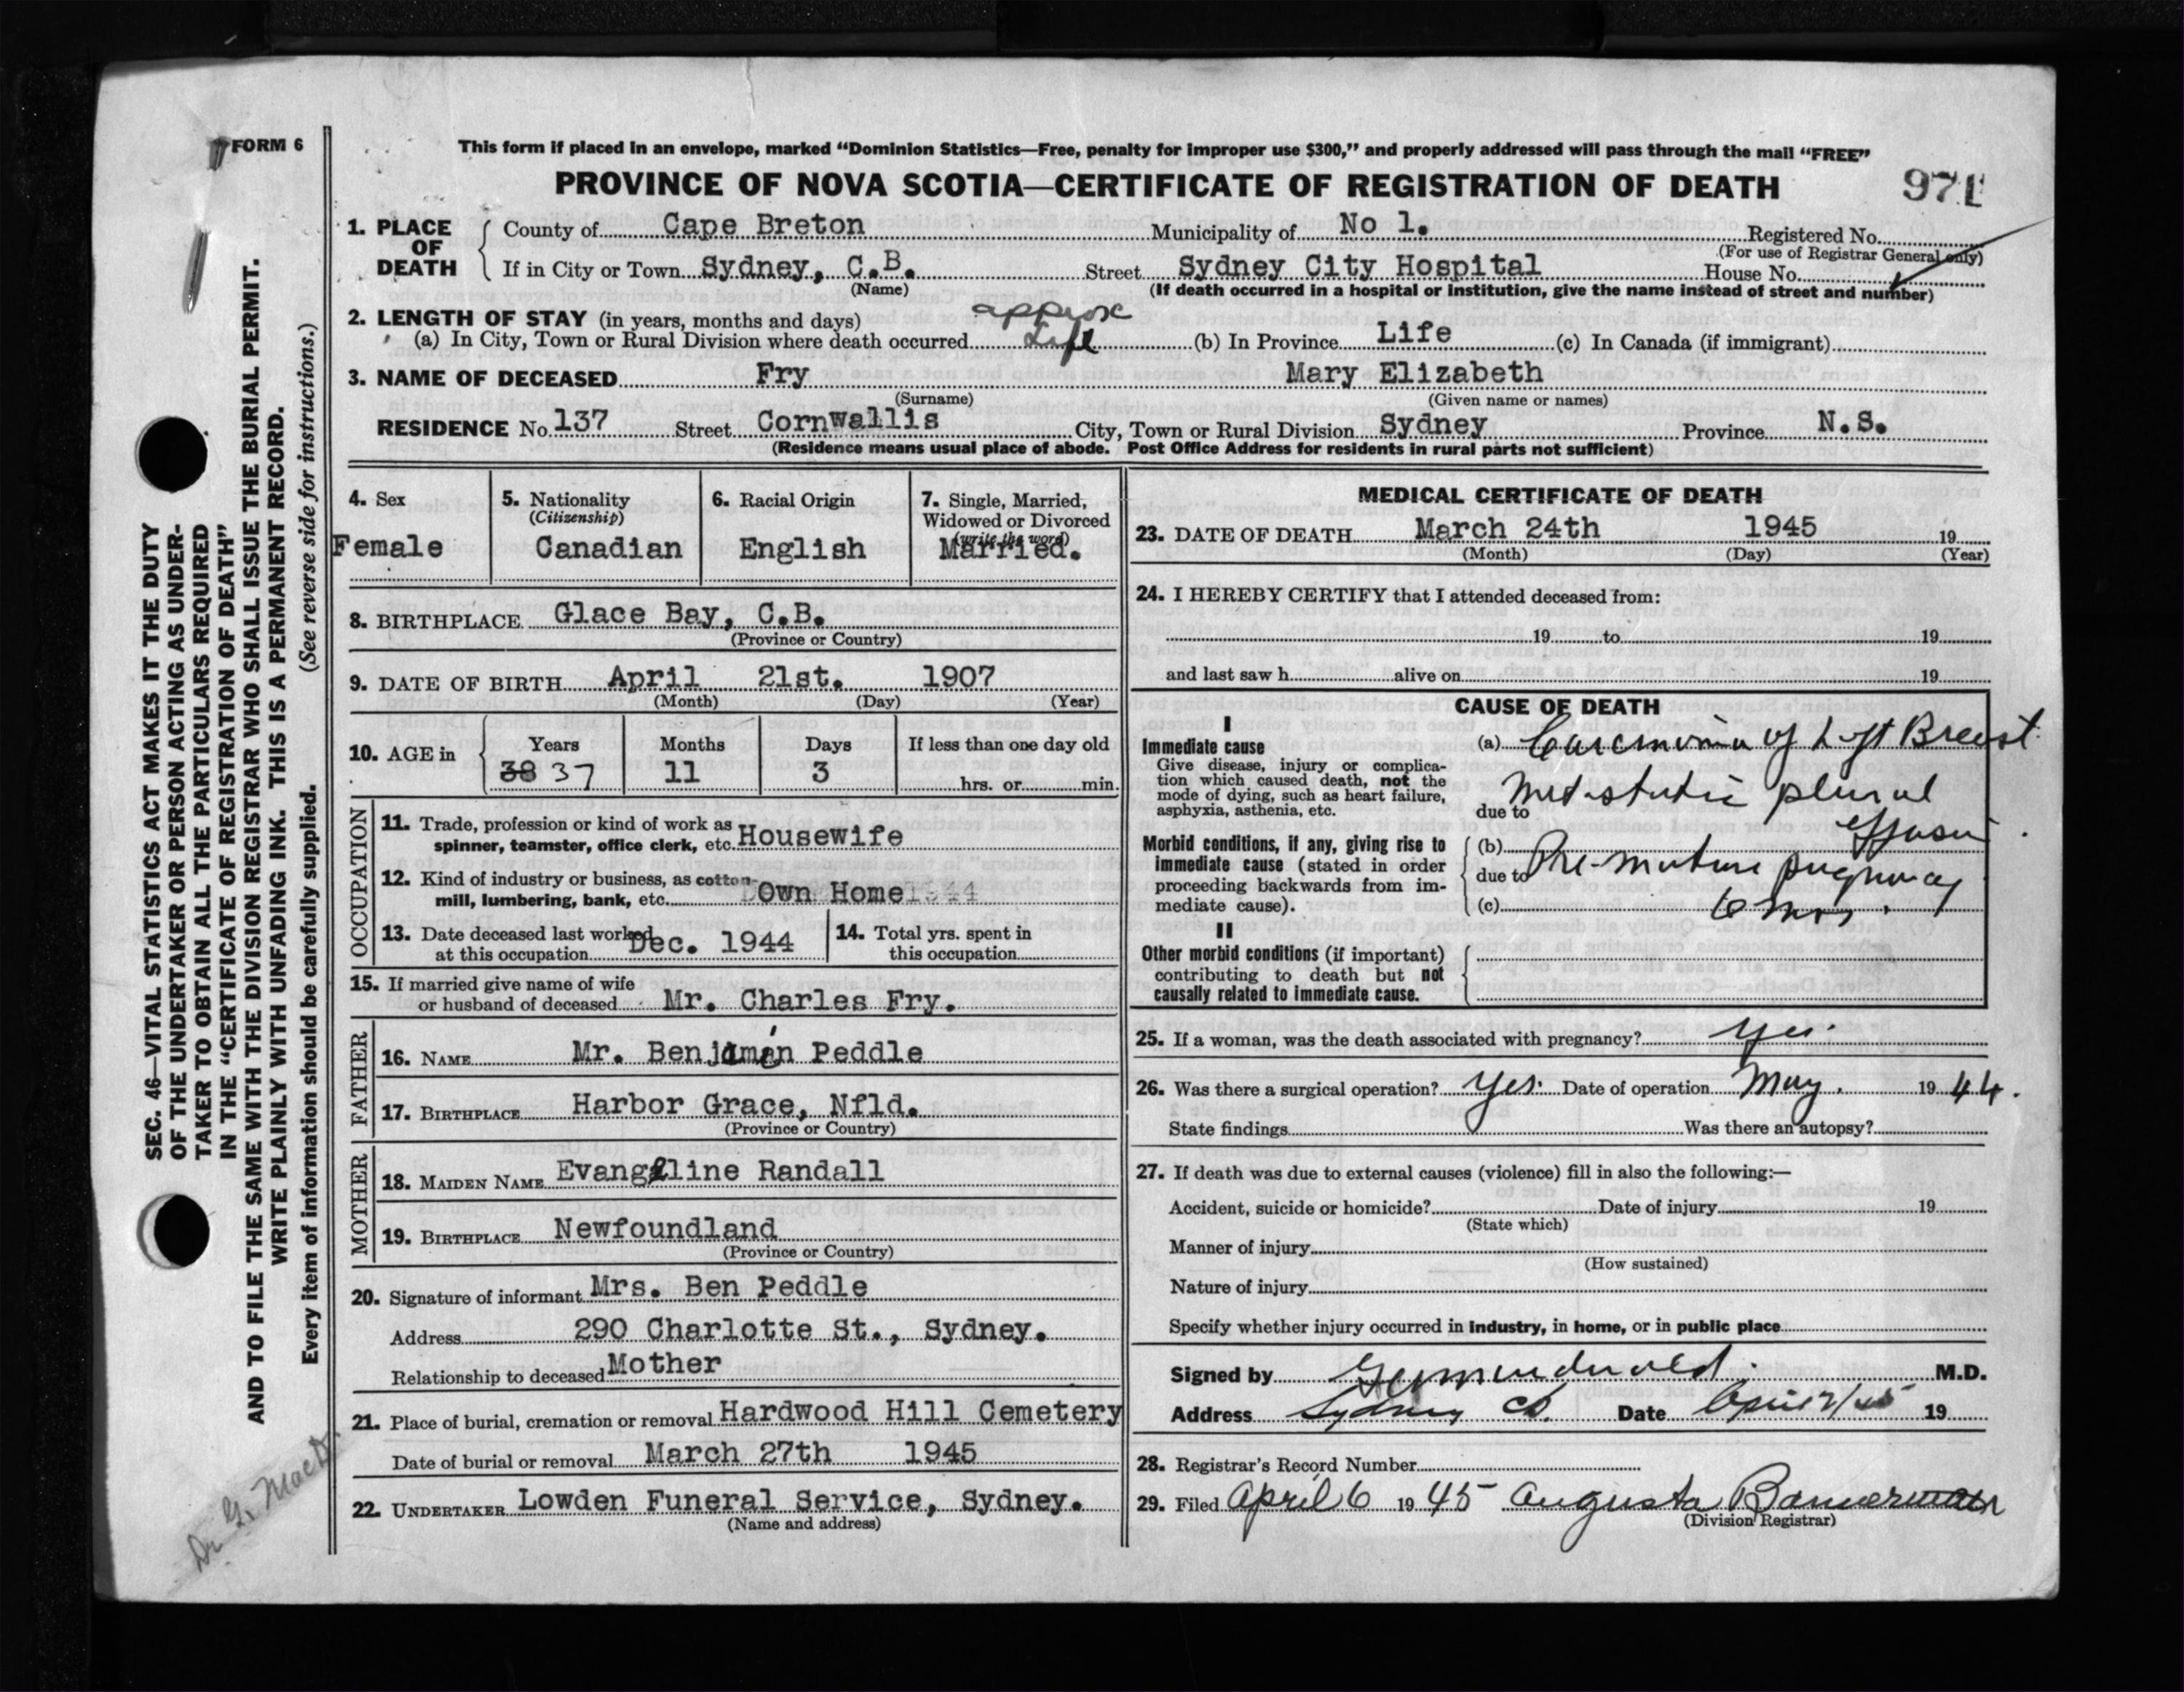 FORM 6
This form if placed in an envelope, marked “Dominion Statistics—Free, penalty for improper use $300,” and properly addressed will pass through the mail “FREE”
PROVINCE OF NOVA SCOTIA—CERTIFICATE OF REGISTRATION OF DEATH
971
SEC. 46—VITAL STATISTICS ACT MAKES IT THE DUTY
OF THE UNDERTAKER OR PERSON ACTING AS UNDER-
TAKER TO OBTAIN ALL THE PARTICULARS REQUIRED
IN THE “CERTIFICATE OF REGISTRATION OF DEATH”
AND TO FILE THE SAME WITH THE DIVISION REGISTRAR WHO SHALL ISSUE THE BURIAL PERMIT.
WRITE PLAINLY WITH UNFADING INK. THIS IS A PERMANENT RECORD.
Every item of information should be carefully supplied. (See reverse side for instructions.)
Dr. G. MacD.
1. PLACE OF DEATH
County of Cape Breton Municipality of No 1. Registered No.
(For use of Registrar General only)
If in City or Town Sydney, C.B. Street Sydney City Hospital House No.
(Name) (If death occurred in a hospital or institution, give the name instead of street and number)
2. LENGTH OF STAY (in years, months and days) approx
(a) In City, Town or Rural Division where death occurred Life (b) In Province Life (c) In Canada (if immigrant)
3. NAME OF DECEASED Fry Mary Elizabeth
(Surname) (Given name or names)
RESIDENCE No. 137 Street Cornwallis City, Town or Rural Division Sydney Province N.S.
(Residence means usual place of abode. Post Office Address for residents in rural parts not sufficient)
4. Sex
Female
5. Nationality
(Citizenship)
Canadian
6. Racial Origin
English
7. Single, Married,
Widowed or Divorced
(write the word)
Married.
8. BIRTHPLACE Glace Bay, C.B.
(Province or Country)
9. DATE OF BIRTH April 21st. 1907
(Month) (Day) (Year)
10. AGE in Years Months Days If less than one day old
38 37 11 3 hrs. or min.
OCCUPATION
11. Trade, profession or kind of work as
spinner, teamster, office clerk, etc. Housewife
12. Kind of industry or business, as cotton-
mill, lumbering, bank, etc. Own Home
13. Date deceased last worked
at this occupation Dec. 1944
14. Total yrs. spent in
this occupation
15. If married give name of wife
or husband of deceased Mr. Charles Fry.
FATHER
16. NAME Mr. Benjimin Peddle
17. BIRTHPLACE Harbor Grace, Nfld.
(Province or Country)
MOTHER
18. MAIDEN NAME Evangeline Randall
19. BIRTHPLACE Newfoundland
(Province or Country)
20. Signature of informant Mrs. Ben Peddle
Address 290 Charlotte St., Sydney.
Relationship to deceased Mother
21. Place of burial, cremation or removal Hardwood Hill Cemetery
Date of burial or removal March 27th 1945
22. UNDERTAKER Lowden Funeral Service, Sydney.
(Name and address)
MEDICAL CERTIFICATE OF DEATH
23. DATE OF DEATH March 24th 1945 19
(Month) (Day) (Year)
24. I HEREBY CERTIFY that I attended deceased from:
19 to 19
and last saw h alive on 19
CAUSE OF DEATH
I
Immediate cause
Give disease, injury or complica-
tion which caused death, not the
mode of dying, such as heart failure,
asphyxia, asthenia, etc.
(a) Carcinoma of Left Breast
due to Metastatic plural
effusion
Morbid conditions, if any, giving rise to
immediate cause (stated in order
proceeding backwards from im-
mediate cause).
(b)
due to Pre-mature pregnancy
(c) 6 mos.
II
Other morbid conditions (if important)
contributing to death but not
causally related to immediate cause.
25. If a woman, was the death associated with pregnancy? yes.
26. Was there a surgical operation? yes. Date of operation May. 19 44.
State findings Was there an autopsy?
27. If death was due to external causes (violence) fill in also the following:—
Accident, suicide or homicide? Date of injury 19
(State which)
Manner of injury
(How sustained)
Nature of injury
Specify whether injury occurred in industry, in home, or in public place
Signed by M.D.
Address Sydney CB. Date April 2/45 19
28. Registrar's Record Number
29. Filed April 6 1945 Augusta Bannerman
(Division Registrar)